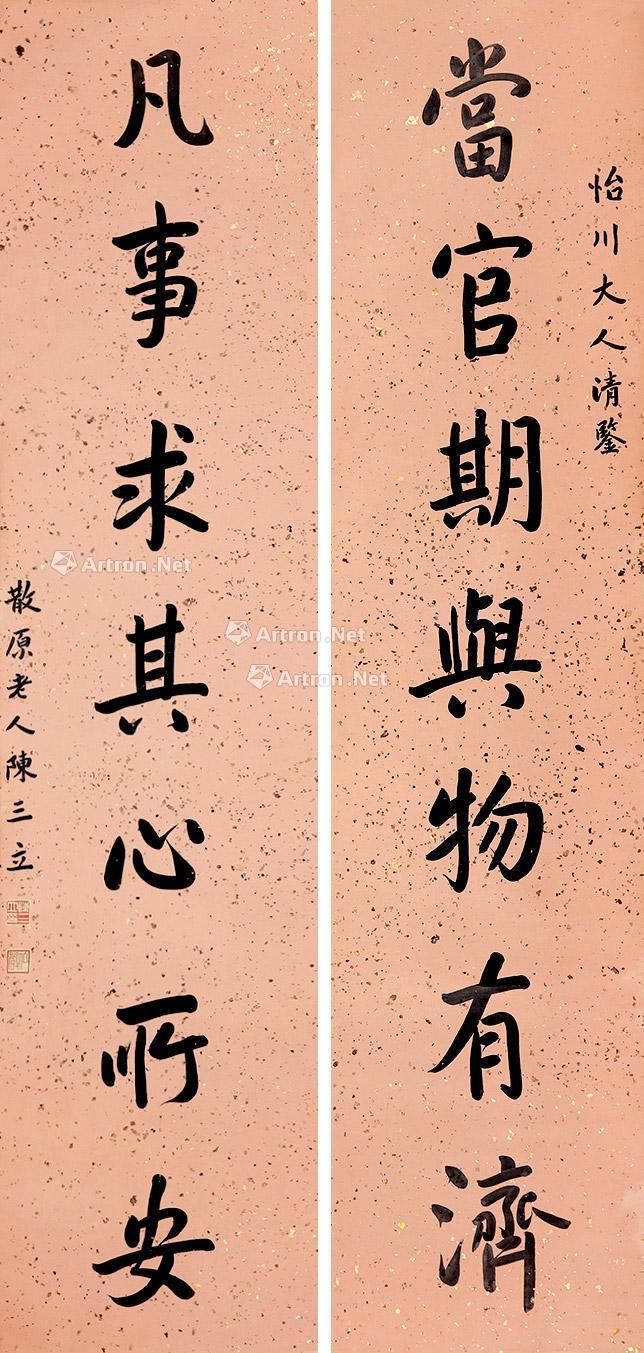 怡川大人清鑒
當官期與物有濟
凡事求其心所安
散原老人陳三立
Artron.Net
Artron.Net
Artron.Net